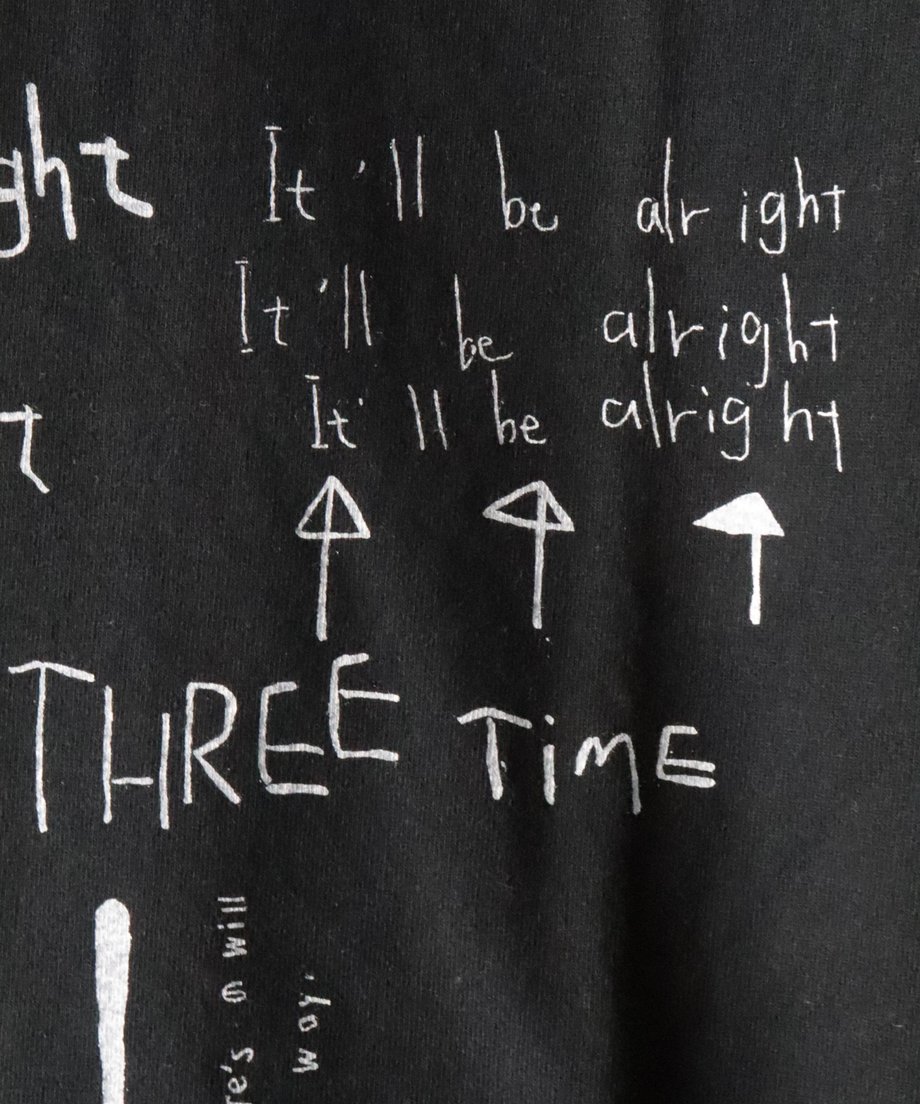 ght
It'll be alright
It'll be alright
t
It'll be alright
THREE TiME
re's a will
way.